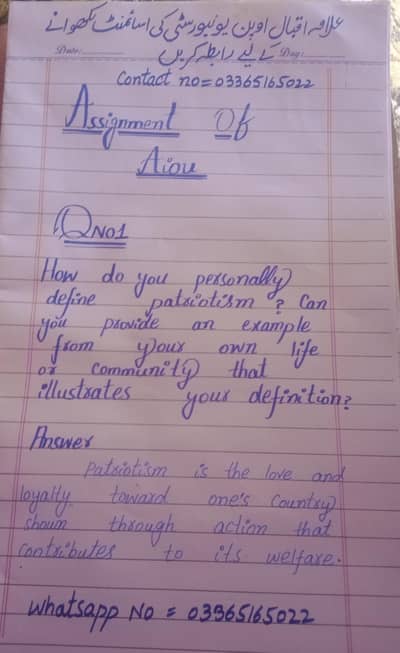 علامہ اقبال اوپن یونیورسٹی کی اسائمنٹ لکھوانے
کے لیے رابطہ کریں
Date: Day:
Contact no = 03365165022
Assignment Of
Aiou
Q No1
How do you personally
define patriotism ? Can
you provide an example
from your own life
or community that
illustrates your definition?
Answer
Patriotism is the love and
loyalty toward one's country
shown through action that
contributes to its welfare.
Whatsapp No = 03365165022